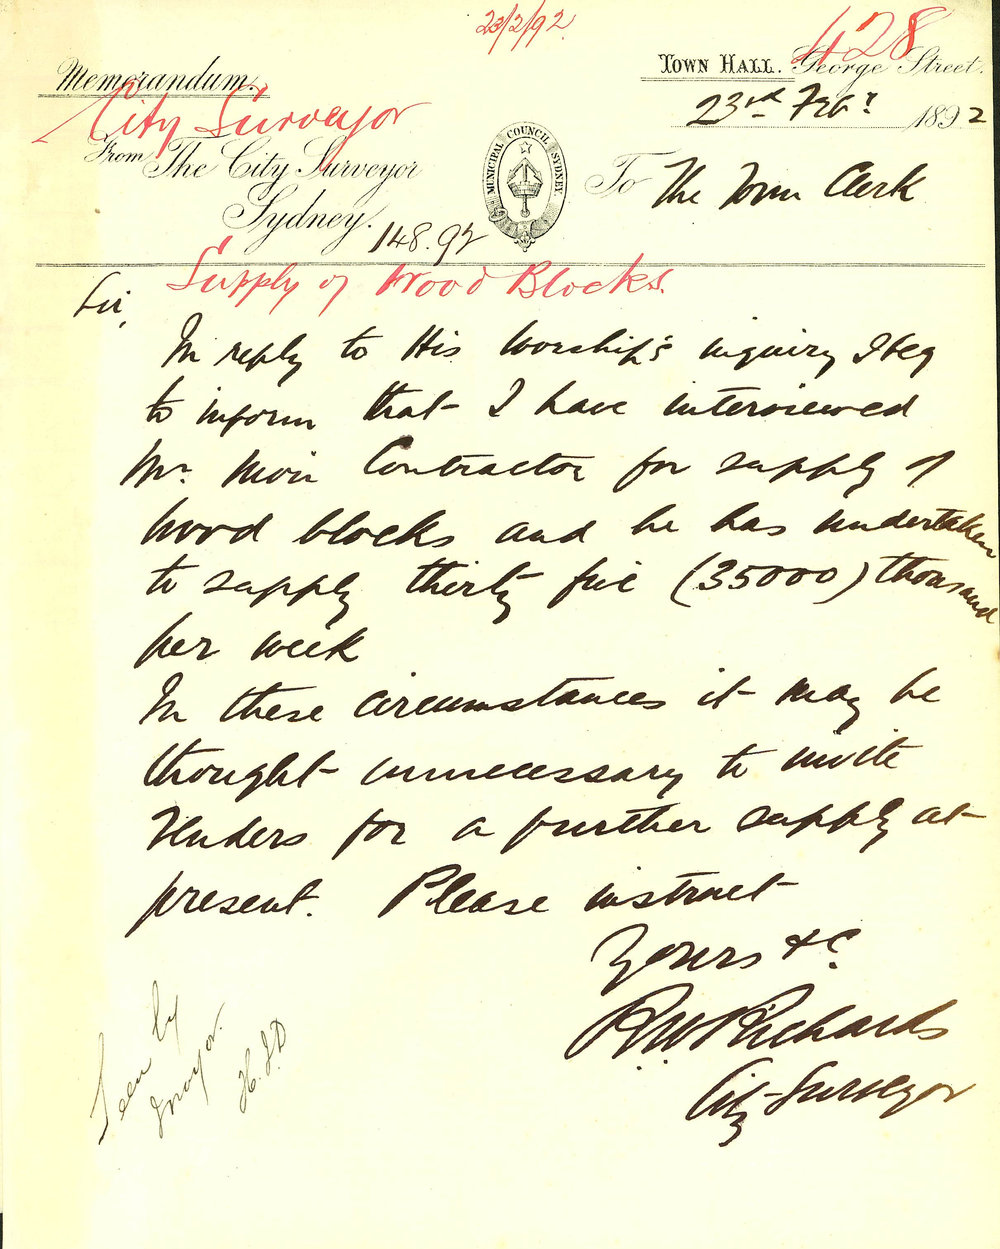 23/2/92
428
Memorandum.
TOWN HALL. George Street.
City Surveyor
23rd Feby 1892
From The City Surveyor
Sydney.
MUNICIPAL COUNCIL SYDNEY
To The Town Clerk
148.92
Supply of Wood Blocks.
Sir,
In reply to His Worship's inquiry I beg
to inform that I have interviewed
Mr. Moir Contractor for supply of
wood blocks and he has undertaken
to supply thirty five (35000) thousand
per week
In these circumstances it may be
thought unnecessary to invite
tenders for a further supply at
present. Please instruct
Yours &c.
R W Richards
City Surveyor
Seen by
Mayor.